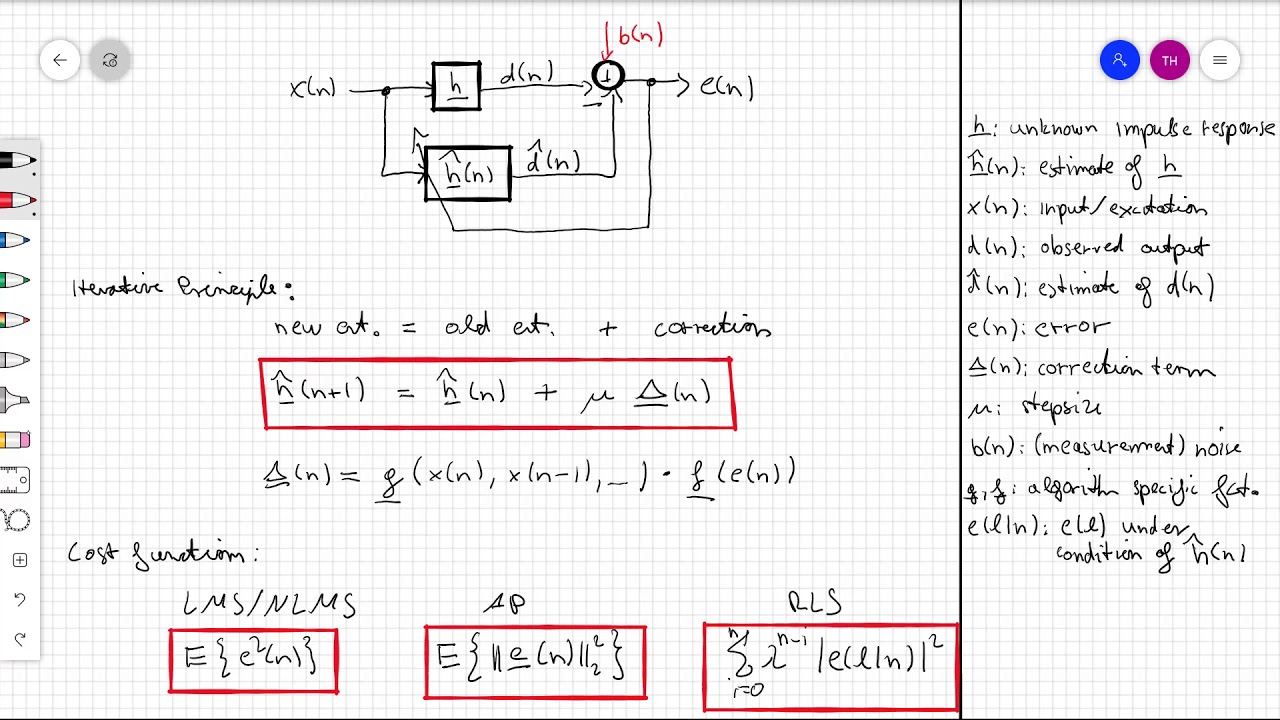 b(n)
x(n)
h
d(n)
+
-
e(n)
ĥ(n)
d̂(n)
Iterative Principle:
new est. = old est. + correction
ĥ(n+1) = ĥ(n) + μ Δ(n)
Δ(n) = g(x(n), x(n-1), …) · f(e(n))
Cost function:
LMS/NLMS AP RLS
E{e²(n)} E{||e(n)||₂²} Σ_{i=0}^{n} λ^{n-i} |e(l|n)|²
TH
h: unknown impulse response
ĥ(n): estimate of h
x(n): input/excitation
d(n): observed output
d̂(n): estimate of d(n)
e(n): error
Δ(n): correction term
μ: stepsize
b(n): (measurement) noise
g, f: algorithm specific fct.
e(l|n): e(l) under
condition of ĥ(n)